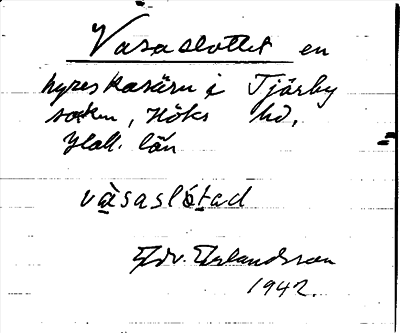 Vasaslottet en
hyreskasärn i Tjärby
sokn, Höks hd,
Hall. län
vàsaslótad
Edv. Erlandsson
1942.